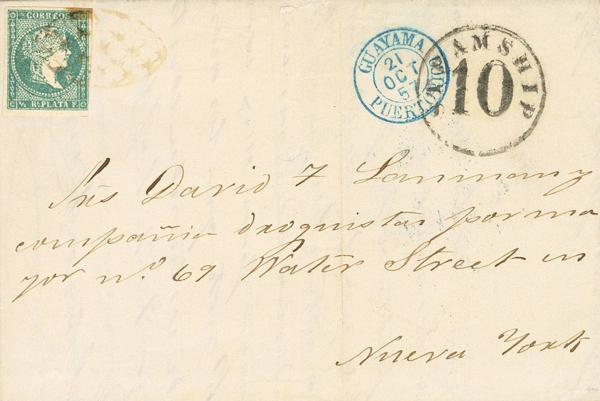 CORREOS
½ Rl. PLATA F.
GUAYAMA
21
OCT
57
PUERTO RICO
STEAMSHIP
10
Srs David T Lanman y
compañia droguistas por ma
yor nº. 69 Water Street en
Nueva York